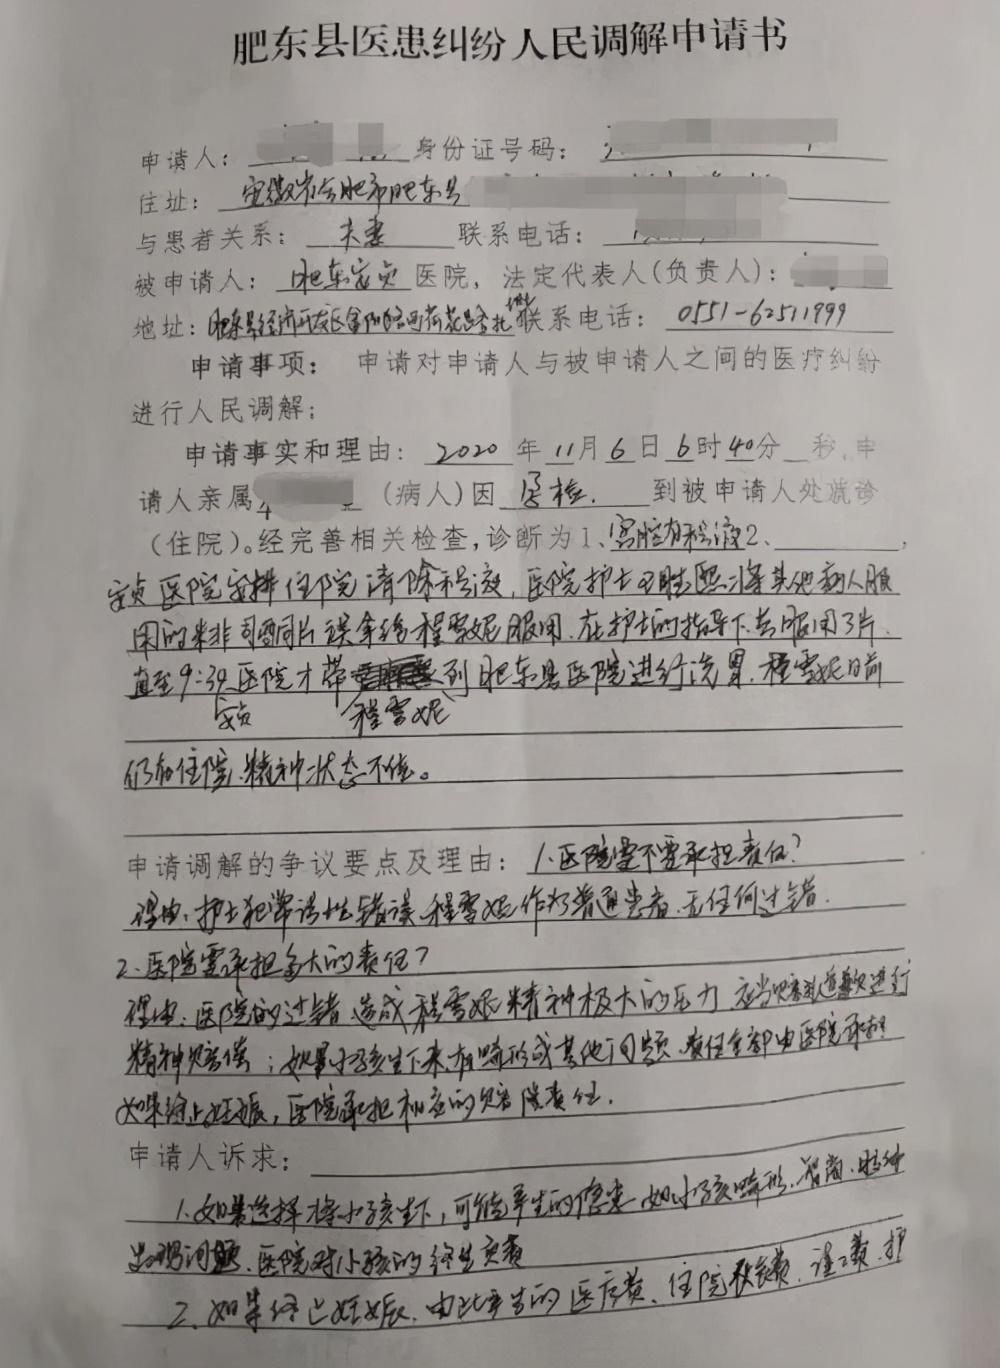 肥东县医患纠纷人民调解申请书
申请人： 身份证号码：
住址：安徽省合肥市肥东县
与患者关系：夫妻 联系电话：
被申请人：肥东安贞医院，法定代表人(负责人)：
地址：肥东县经济开发区金阳路与荷花路 联系电话：0551-62511999
申请事项： 申请对申请人与被申请人之间的医疗纠纷
进行人民调解；
申请事实和理由：2020年11月6日6时40分 秒，申
请人亲属 （病人）因孕检. 到被申请人处就诊
（住院）。经完善相关检查，诊断为1、宫腔有积液2、 ，
安贞医院安排住院清除积液，医院护士 将其他病人服
用的米非司酮片误拿给程雪妮服用.在护士的指导下共服用3片.
直至9:30医院才带 到肥东县医院进行洗胃.程雪妮目前
安贞 程雪妮
仍在住院、精神状态不佳。
申请调解的争议要点及理由：1.医院需不需承担责任？
理由：护士犯常识性错误 程雪妮作为普通患者.无任何过错.
2.医院需承担多大的责任？
理由：医院的过错 造成程雪妮精神极大的压力 应当 道歉进行
精神赔偿；如果小孩生下来有畸形或其他问题 责任全部由医院承担.
如果终止妊娠，医院承担相应的赔偿责任.
申请人诉求：
1.如果选择将小孩生下，可能产生的 如小孩畸形.智商.
出现问题.医院对小孩的终生负责
2、如果终止妊娠.由此产生的医疗费、住院 费.误工费.护